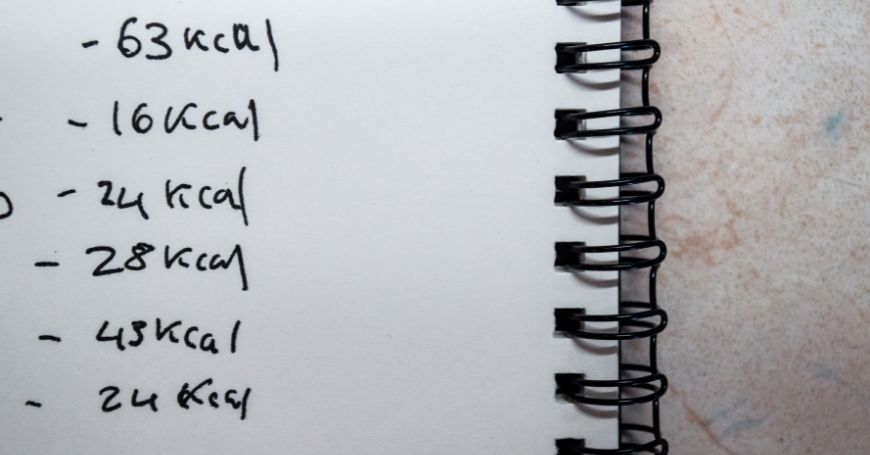 - 63 Kcal
- 16 Kcal
- 24 Kcal
- 28 Kcal
- 43 Kcal
- 24 Kcal